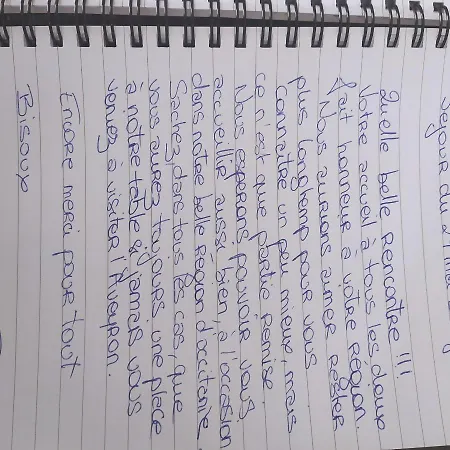 Séjour du 21 mai
Quelle belle rencontre !!!
Votre accueil à tous les deux
fait honneur à votre région
Nous aurions aimer rester
plus longtemp pour vous
connaître un peu mieux, mais
ce n'est que partie remise.
Nous espérons pouvoir vous
accueillir aussi bien, à l'occasion
dans notre belle région d'occitanie.
Sachez, dans tous les cas, que
vous aurez toujours une place
à notre table si jamais vous
venez à visiter l'Aveyron.
Encore merci pour tout
Bisoux